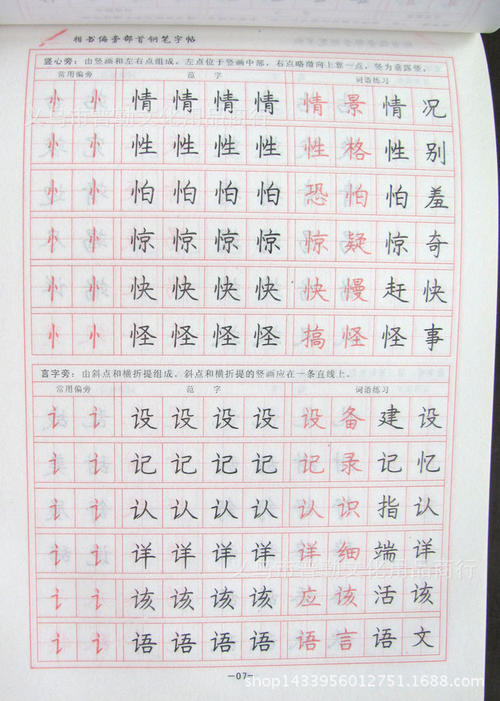 楷书偏旁部首钢笔字帖
竖心旁：由竖画和左右点组成。左点位于竖画中部，右点略微向上靠一点，竖为垂露竖。
常用偏旁 范字 词语练习
忄 忄 情 情 情 情 情 景 情 况
忄 忄 性 性 性 性 性 格 性 别
忄 忄 怕 怕 怕 怕 恐 怕 怕 羞
忄 忄 惊 惊 惊 惊 惊 疑 惊 奇
忄 忄 快 快 快 快 快 慢 赶 快
忄 忄 怪 怪 怪 怪 搞 怪 怪 事
言字旁：由斜点和横折提组成。斜点和横折提的竖画应在一条直线上。
常用偏旁 范字 词语练习
讠 讠 设 设 设 设 设 备 建 设
讠 讠 记 记 记 记 记 录 记 忆
讠 讠 认 认 认 认 认 识 指 认
讠 讠 详 详 详 详 详 细 端 详
讠 讠 该 该 该 该 应 该 活 该
讠 讠 语 语 语 语 语 言 语 文
—07—
shop1433956012751.1688.com